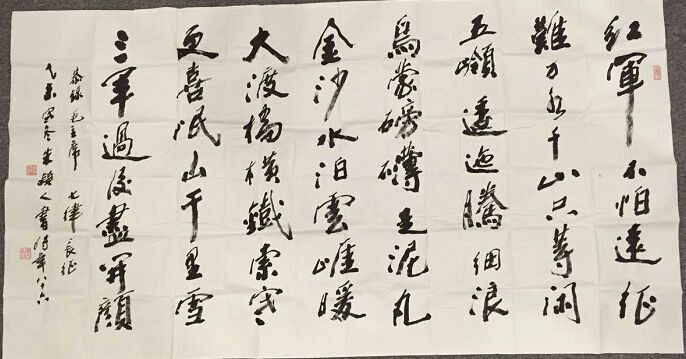 紅軍不怕遠征
難万水千山只等闲
五嶺逶迤騰細浪
烏蒙磅礴走泥丸
金沙水泊雲崖暖
大渡橋橫鐵索寒
更喜岷山千里雪
三軍過後盡開顏
恭錄毛主席 七律 長征
冬 人書時年八十六